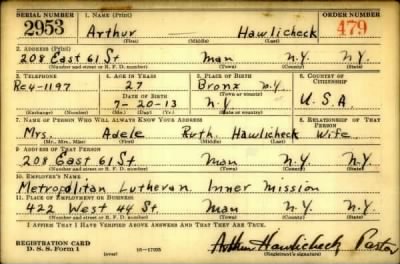 SERIAL NUMBER 1. NAME (Print) ORDER NUMBER
2953 Arthur Hawlicheck 479
(First) (Middle) (Last)
2. ADDRESS (Print)
208 East 61 St. Man N.Y. N.Y.
(Number and street or R. F. D. number) (Town) (County) (State)
3. TELEPHONE 4. AGE IN YEARS 5. PLACE OF BIRTH 6. COUNTRY OF CITIZENSHIP
Re4-1197 27 Bronx N.Y.
DATE OF BIRTH (Town or county)
7-20-13 N.Y U.S.A
(Exchange) (Number) (Mo.) (Day) (Yr.) (State or country)
7. NAME OF PERSON WHO WILL ALWAYS KNOW YOUR ADDRESS 8. RELATIONSHIP OF THAT PERSON
Mrs. Adele Ruth Hawlicheck Wife
(Mr., Mrs., Miss) (First) (Middle) (Last)
9. ADDRESS OF THAT PERSON
208 East 61 St. Man N.Y. N.Y.
(Number and street or R. F. D. number) (Town) (County) (State)
10. EMPLOYER'S NAME
Metropolitan Lutheran Inner Mission
11. PLACE OF EMPLOYMENT OR BUSINESS
422 West 44 St. Man N.Y. N.Y.
(Number and street or R. F. D. number) (Town) (County) (State)
I AFFIRM THAT I HAVE VERIFIED ABOVE ANSWERS AND THAT THEY ARE TRUE.
REGISTRATION CARD Arthur Hawlicheck Pastor
D. S. S. Form 1 (over) (Registrant's signature)